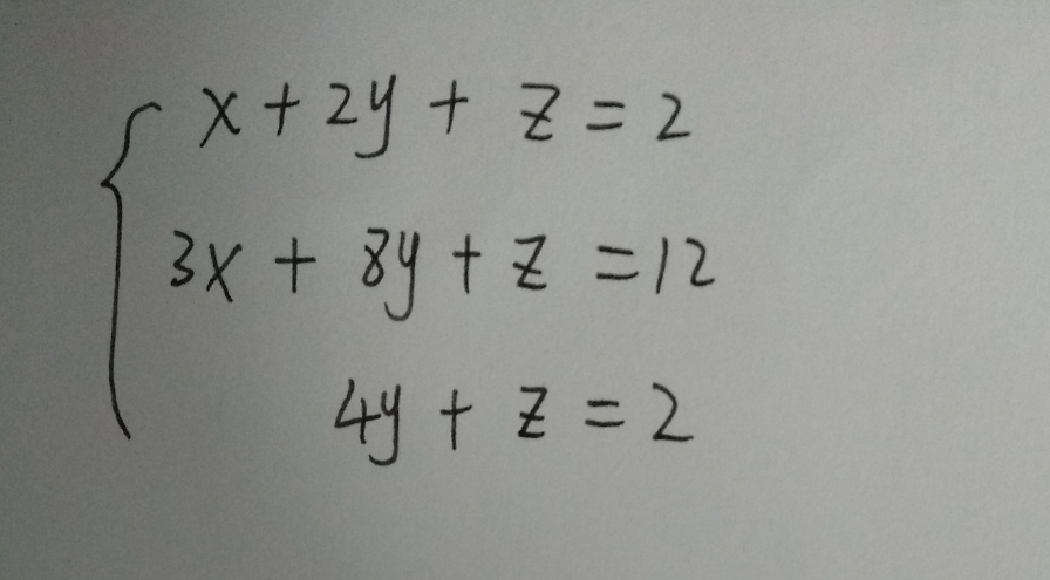 x + 2y + z = 2
3x + 8y + z = 12
4y + z = 2